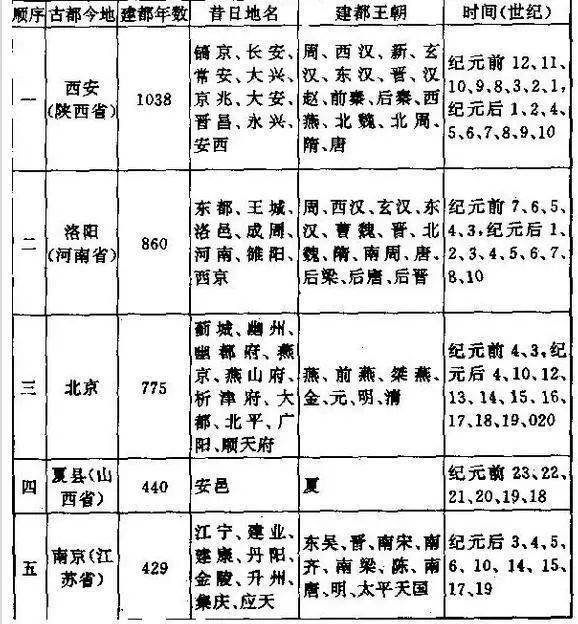 顺序 古都今地 建都年数 昔日地名 建都王朝 时间(世纪)
一
西安
(陕西省)
1038
镐京、长安、
常安、大兴、
京兆、大安、
晋昌、永兴、
安西
周、西汉、新、玄
汉、东汉、晋、汉
赵、前秦、后秦、西
燕、北魏、北周、
隋、唐
纪元前 12、11、
10、9、8、3、2、1,
纪元后 1、2、4、
5、6、7、8、9、10
二
洛阳
(河南省)
860
东都、王城、
洛邑、成周、
河南、雒阳、
西京
周、西汉、玄汉、东
汉、曹魏、晋、北
魏、隋、南周、唐、
后梁、后唐、后晋
纪元前 7、6、5、
4、3,纪元后 1、
2、3、4、5、6、7、
8、10
三
北京
775
蓟城、幽州、
幽都府、燕
京、燕山府、
析津府、大
都、北平、广
阳、顺天府
燕、前燕、桀燕、
金、元、明、清
纪元前 4、3,纪
元后 4、10、12、
13、14、15、16、
17、18、19、020
四
夏县(山
西省)
440
安邑
夏
纪元前 23、22、
21、20、19、18
五
南京(江
苏省)
429
江宁、建业、
建康、丹阳、
金陵、升州、
集庆、应天
东吴、晋、南宋、南
齐、南梁、陈、南
唐、明、太平天国
纪元后 3、4、5、
6、10、14、15、
17、19